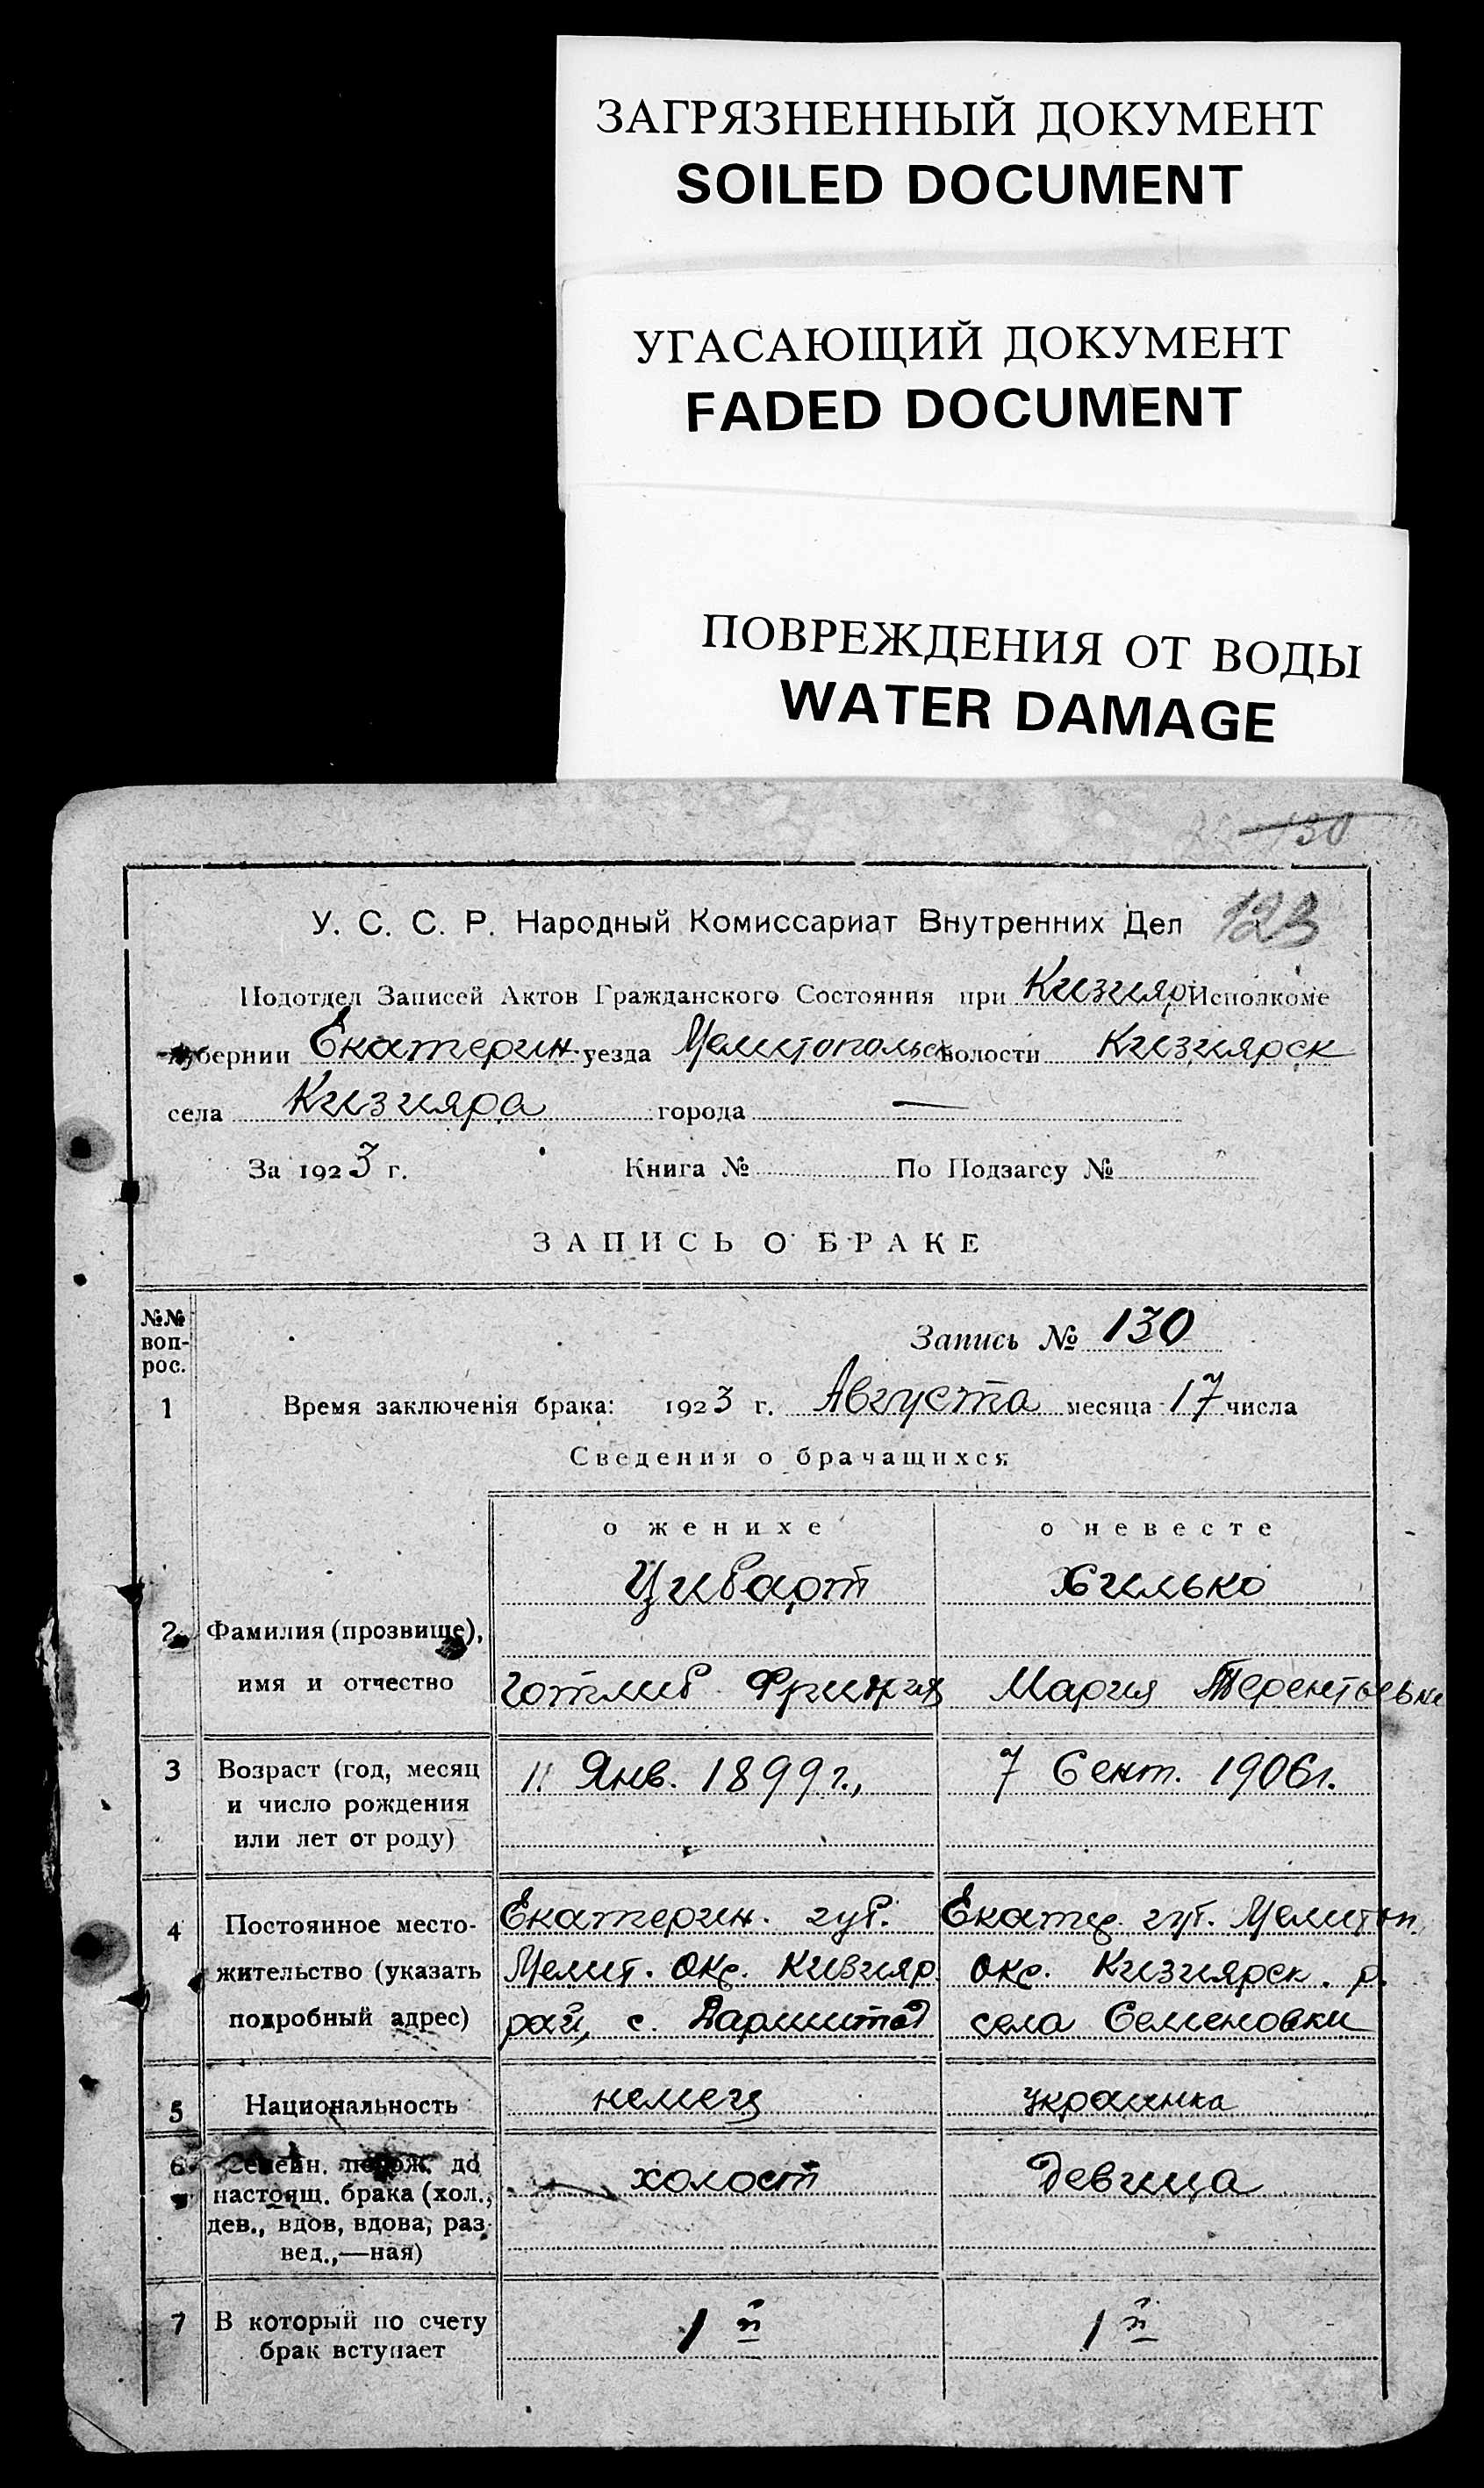 ЗАГРЯЗНЕННЫЙ ДОКУМЕНТ
SOILED DOCUMENT
УГАСАЮЩИЙ ДОКУМЕНТ
FADED DOCUMENT
ПОВРЕЖДЕНИЯ ОТ ВОДЫ
WATER DAMAGE
130
123
У. С. С. Р. Народный Комиссариат Внутренних Дел
Подотдел Записей Актов Гражданского Состояния при Кизияр Исполкоме
губернии Екатерин уезда Мелитопольск волости Кизиярск
села Кизияра города —
За 1923 г. Книга № По Подзагсу №
ЗАПИСЬ О БРАКЕ
№№ вопрос.
Запись № 130
1 Время заключенія брака: 1923 г. Августа месяца 17 числа
Сведения о брачащихся
о женихе о невесте
Циварт Хилько
2 Фамилия (прозвище),
имя и отчество Готлиб Мария Терентьевн
3 Возраст (год, месяц 11 Янв. 1899 г., 7 Сент. 1906 г.
и число рождения
или лет от роду)
4 Постоянное место- Екатерин. губ. Екатер. губ. Мелитоп.
жительство (указать Мелит. окр. Кизияр. окр. Кизиярск. р.
подробный адрес) рай, с. Дармштад села Семеновки
5 Национальность немец украинка
6 Семейн. полож. до холост девица
настоящ. брака (хол.,
дев., вдов, вдова, раз-
вед.,—ная)
7 В который по счету 1й 1й
брак вступает